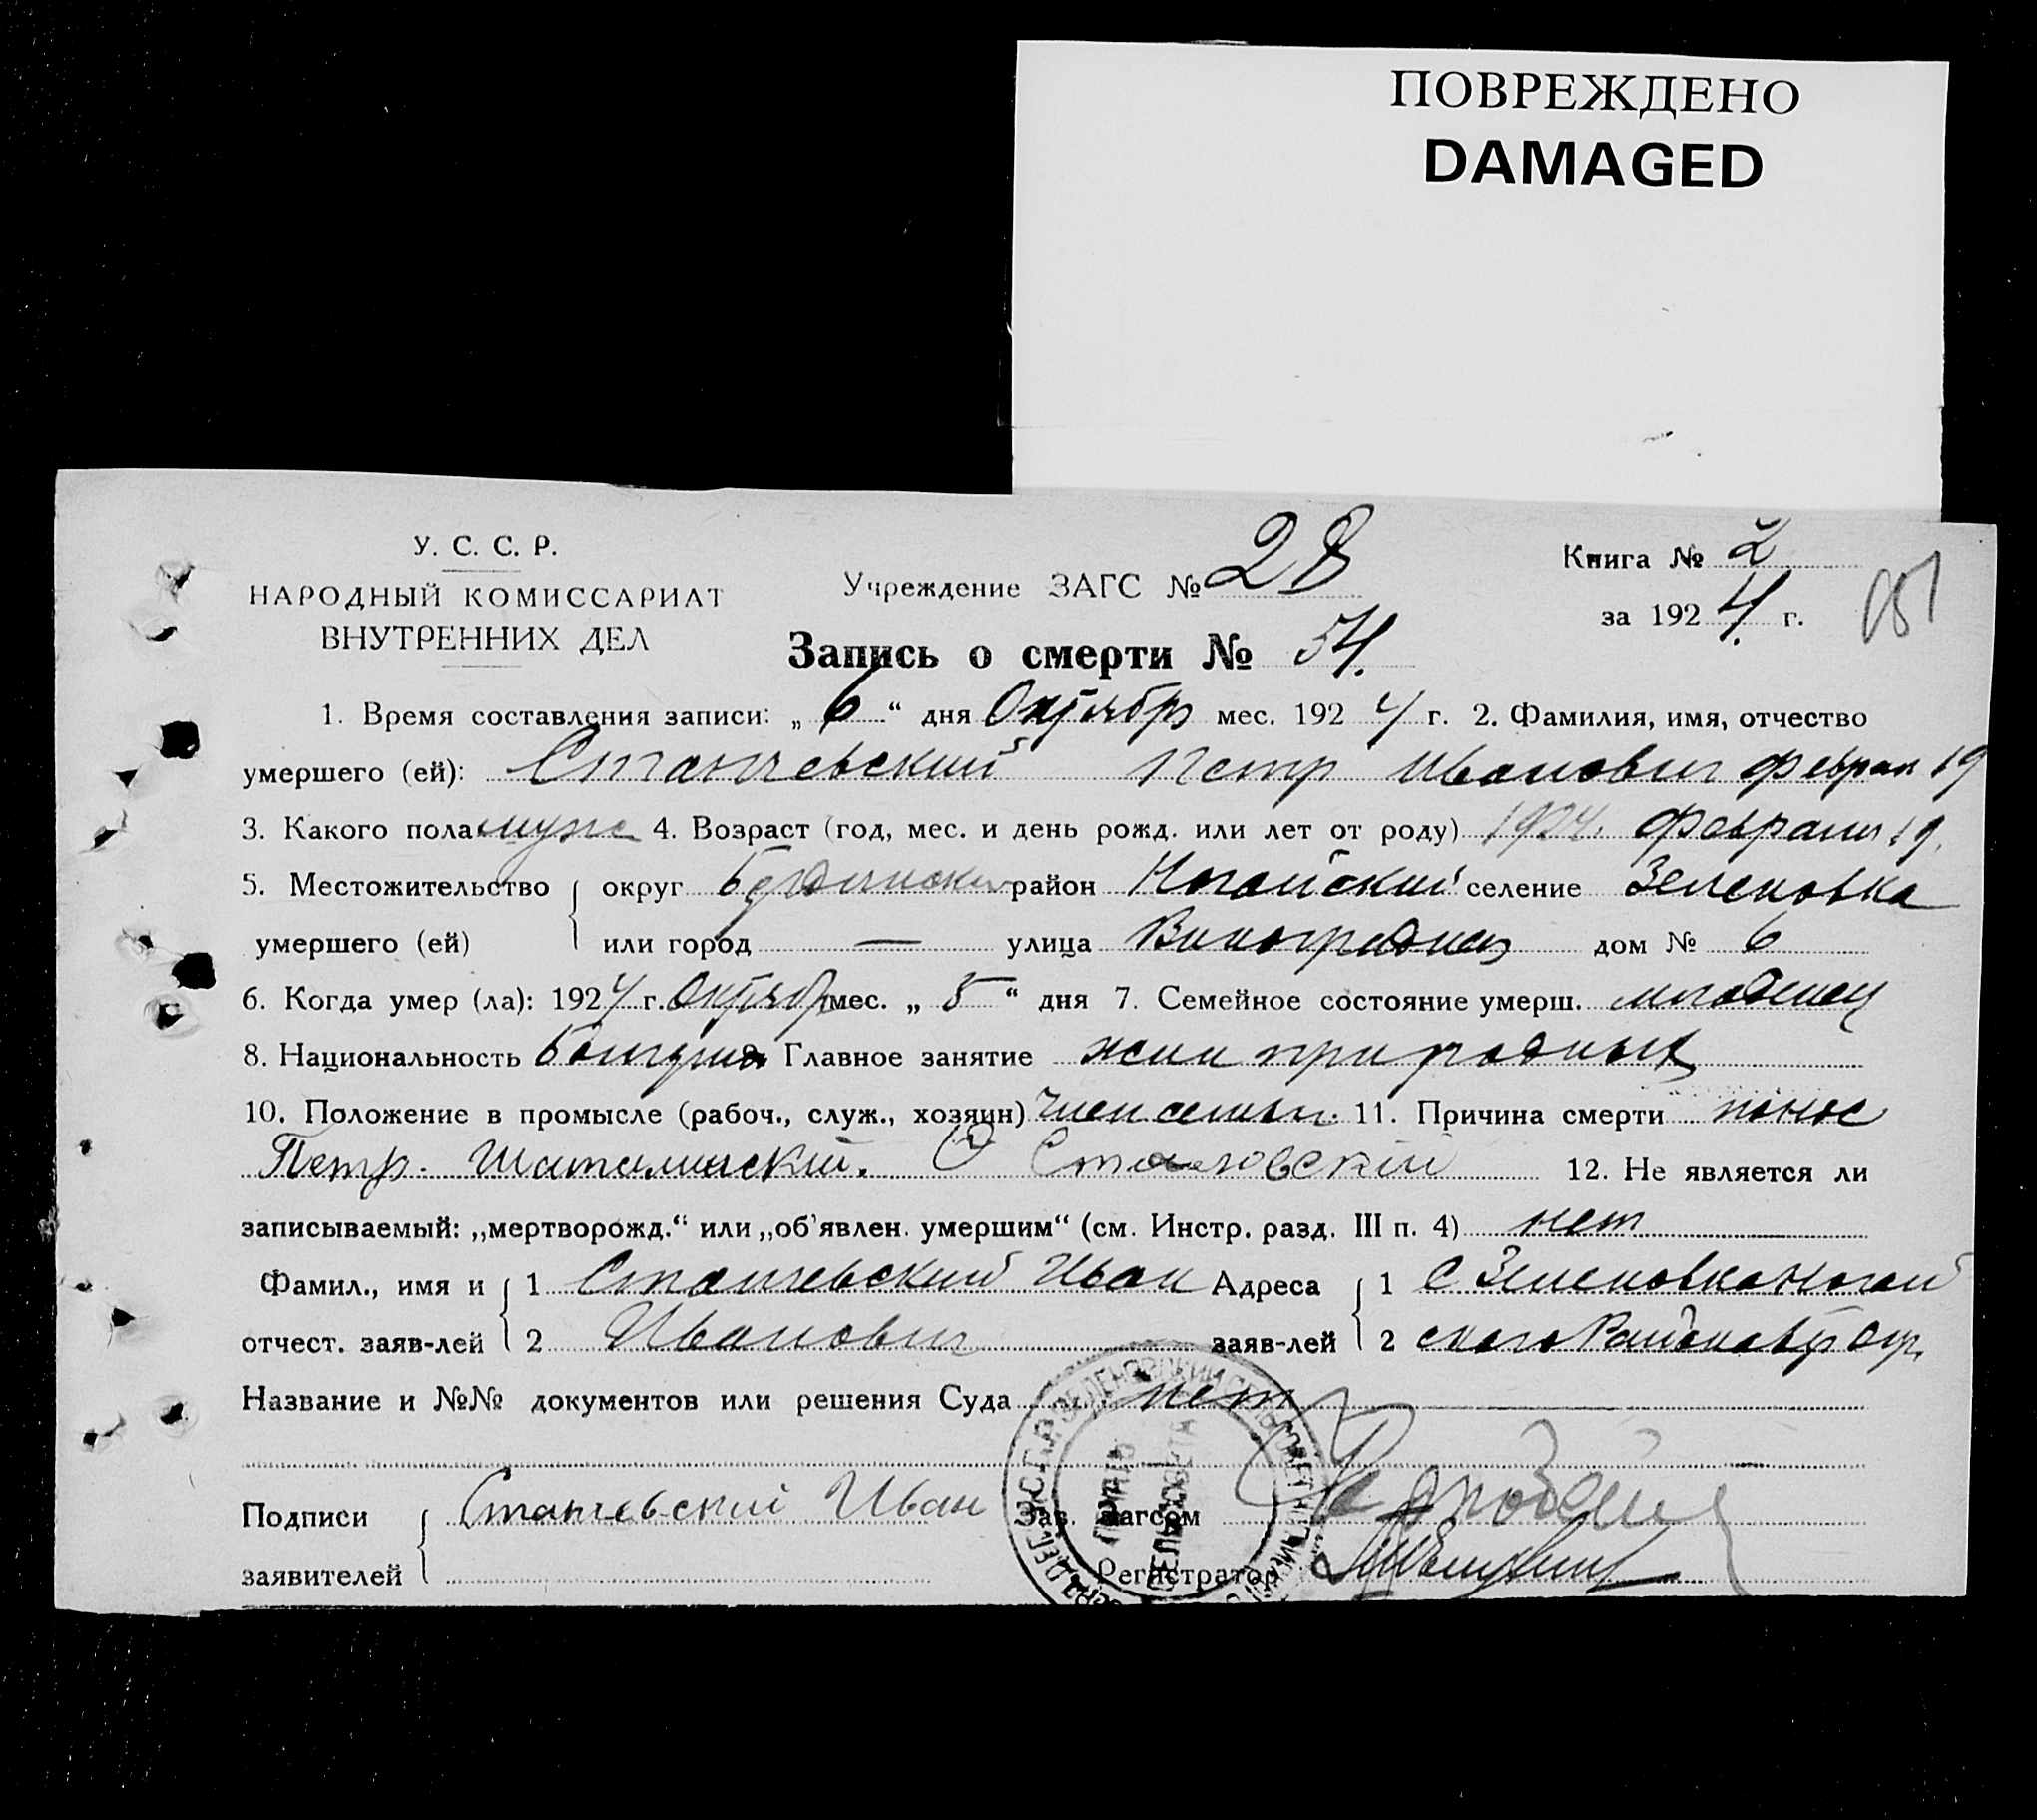 ПОВРЕЖДЕНО
DAMAGED
У. С. С. Р.
НАРОДНЫЙ КОМИССАРИАТ
ВНУТРЕННИХ ДЕЛ
Учреждение ЗАГС № 28
Книга № 2
за 1924 г.
Запись о смерти № 54.
1. Время составления записи: „ 6 “ дня Октябр мес. 1924 г. 2. Фамилия, имя, отчество
умершего (ей): Станчевский Петр Иванович феврал 19
3. Какого пола муж 4. Возраст (год, мес. и день рожд. или лет от роду) 1924. февраля 19.
5. Местожительство округ район Ногайский селение Зеленовка
умершего (ей) или город — улица Виноградная дом № 6
6. Когда умер (ла): 1924 г. Октябр мес. „ 5 “ дня 7. Семейное состояние умерш. младенец
8. Национальность Болгрин 9. Главное занятие при родных
10. Положение в промысле (рабоч., служ., хозяин) член семьи. 11. Причина смерти понос
Петр. 12. Не является ли
записываемый: „мертворожд.“ или „об'явлен. умершим“ (см. Инстр. разд. III п. 4) нет
Фамил., имя и 1 Станчевский Иван Адреса 1 с Зеленовка Ногай
отчест. заяв-лей 2 Иванович заяв-лей 2 ского Района
Название и №№ документов или решения Суда нет
Подписи Станчевский Иван Зав. Загсом
заявителей Регистратор